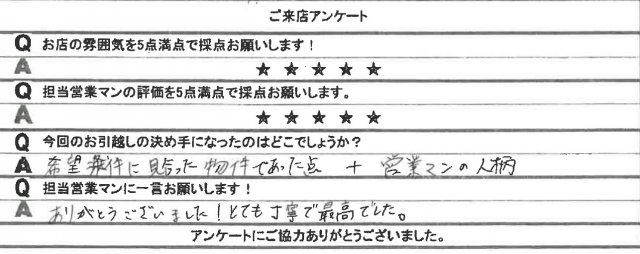 ご来店アンケート
Q お店の雰囲気を5点満点で採点お願いします！
A ★ ★ ★ ★ ★
Q 担当営業マンの評価を5点満点で採点お願いします。
A ★ ★ ★ ★ ★
Q 今回のお引越しの決め手になったのはどこでしょうか？
A 希望条件に見合った物件であった点 + 営業マンの人柄
Q 担当営業マンに一言お願いします！
A ありがとうございました！とても丁寧で最高でした。
アンケートにご協力ありがとうございました。